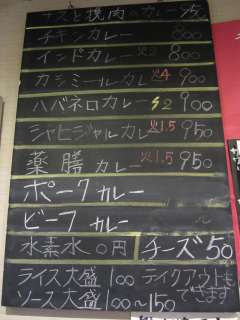 ナスと挽肉のカレー 950
チキンカレー 800
インドカレー 火2 800
カシミールカレー 火4 900
ハバネロカレー 900
シャヒジャルカレー 火1.5 950
薬膳カレー 火1.5 950
ポークカレー
ビーフカレー
水素水0円 チーズ50
ライス大盛100 テイクアウトも
ソース大盛100~150 できます